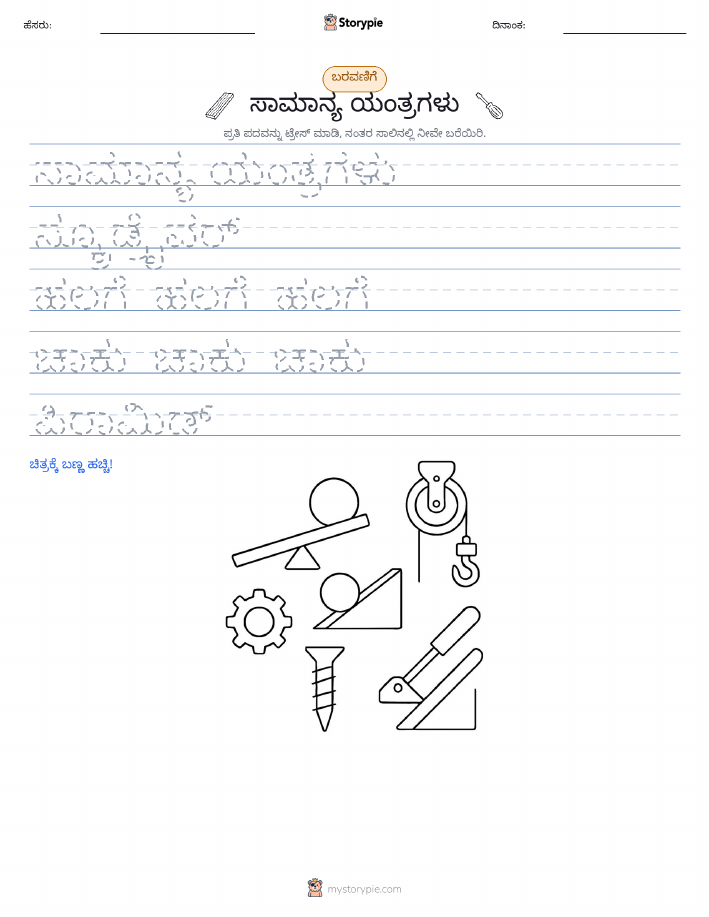 ಹೆಸರು:
Storypie
ದಿನಾಂಕ:
ಬರವಣಿಗೆ
ಸಾಮಾನ್ಯ ಯಂತ್ರಗಳು
ಪ್ರತಿ ಪದವನ್ನು ಟ್ರೇಸ್ ಮಾಡಿ, ನಂತರ ಸಾಲಿನಲ್ಲಿ ನೀವೇ ಬರೆಯಿರಿ.
ಸಾಮಾನ್ಯ ಯಂತ್ರಗಳು
ಸ್ಕ್ರೂಡ್ರೈವರ್
ಹಲಗೆ ಹಲಗೆ ಹಲಗೆ
ಚಾಕು ಚಾಕು ಚಾಕು
ಪಿರಾಮಿಡ್
ಚಿತ್ರಕ್ಕೆ ಬಣ್ಣ ಹಚ್ಚಿ!
mystorypie.com